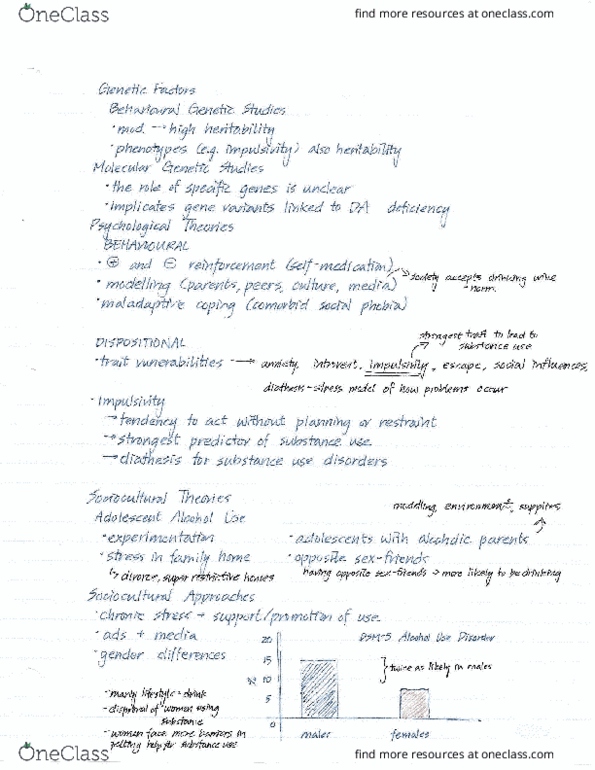 OneClass
find more resources at oneclass.com
Genetic Factors
Behavioural Genetic Studies
• mod. → high heritability
• phenotypes (e.g. impulsivity) also heritability
Molecular Genetic Studies
• the role of specific genes is unclear
• implicates gene variants linked to DA deficiency
Psychological Theories
BEHAVIOURAL
• ⊕ and ⊖ reinforcement (self-medication)
→ society accepts drinking wine norm.
• modelling (parents, peers, culture, media)
• maladaptive coping (comorbid social phobia)
strongest trait to lead to
substance use
DISPOSITIONAL
• trait vulnerabilities → anxiety, introvert, impulsivity, escape, social influences,
diathesis-stress model of how problems occur
• Impulsivity
→ tendency to act without planning or restraint
→ strongest predictor of substance use
→ diathesis for substance use disorders
Sociocultural Theories
modelling, environment, supplies
Adolescent Alcohol Use
• experimentation
• adolescents with alcoholic parents
• stress in family home
• opposite sex-friends
↳ divorce, super restrictive houses
having opposite sex-friends → more likely to be drinking
Sociocultural Approaches
• chronic stress → support/promotion of use
• ads + media
• gender differences
DSM-5 Alcohol Use Disorder
20
15
10
5
0
%
twice as likely in males
males
females
• manly lifestyle = drink
• disproval of women using
substance
• women face more barriers in
getting help for substance use
OneClass
find more resources at oneclass.com